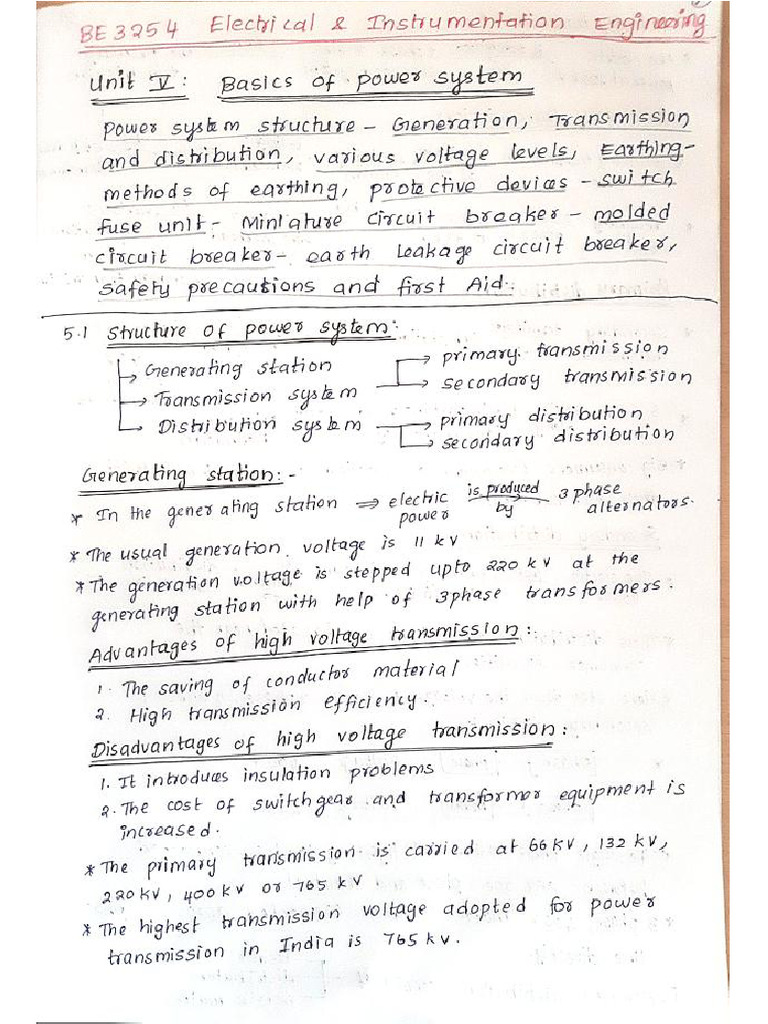 BE3254 Electrical & Instrumentation Engineering
Unit V: Basics of power system
Power system structure - Generation, Transmission
and distribution, various voltage levels, Earthing-
methods of earthing, protective devices - switch
fuse unit - Miniature circuit breaker - molded
circuit breaker - earth leakage circuit breaker,
safety precautions and first Aid.
5.1 Structure of power system:-
Generating station
primary transmission
Transmission system
secondary transmission
Distribution system
primary distribution
secondary distribution
Generating station:-
* In the generating station ⇒ electric power is produced by 3 phase alternators.
* The usual generation voltage is 11 kV
* The generation voltage is stepped upto 220 kV at the
generating station with help of 3phase transformers.
Advantages of high voltage transmission:-
1. The saving of conductor material
2. High transmission efficiency.
Disadvantages of high voltage transmission:
1. It introduces insulation problems
2. The cost of switchgear and transformer equipment is
increased.
* The primary transmission is carried at 66kV, 132 kV,
220kV, 400kV or 765 kV.
* The highest transmission voltage adopted for power
transmission in India is 765 kV.